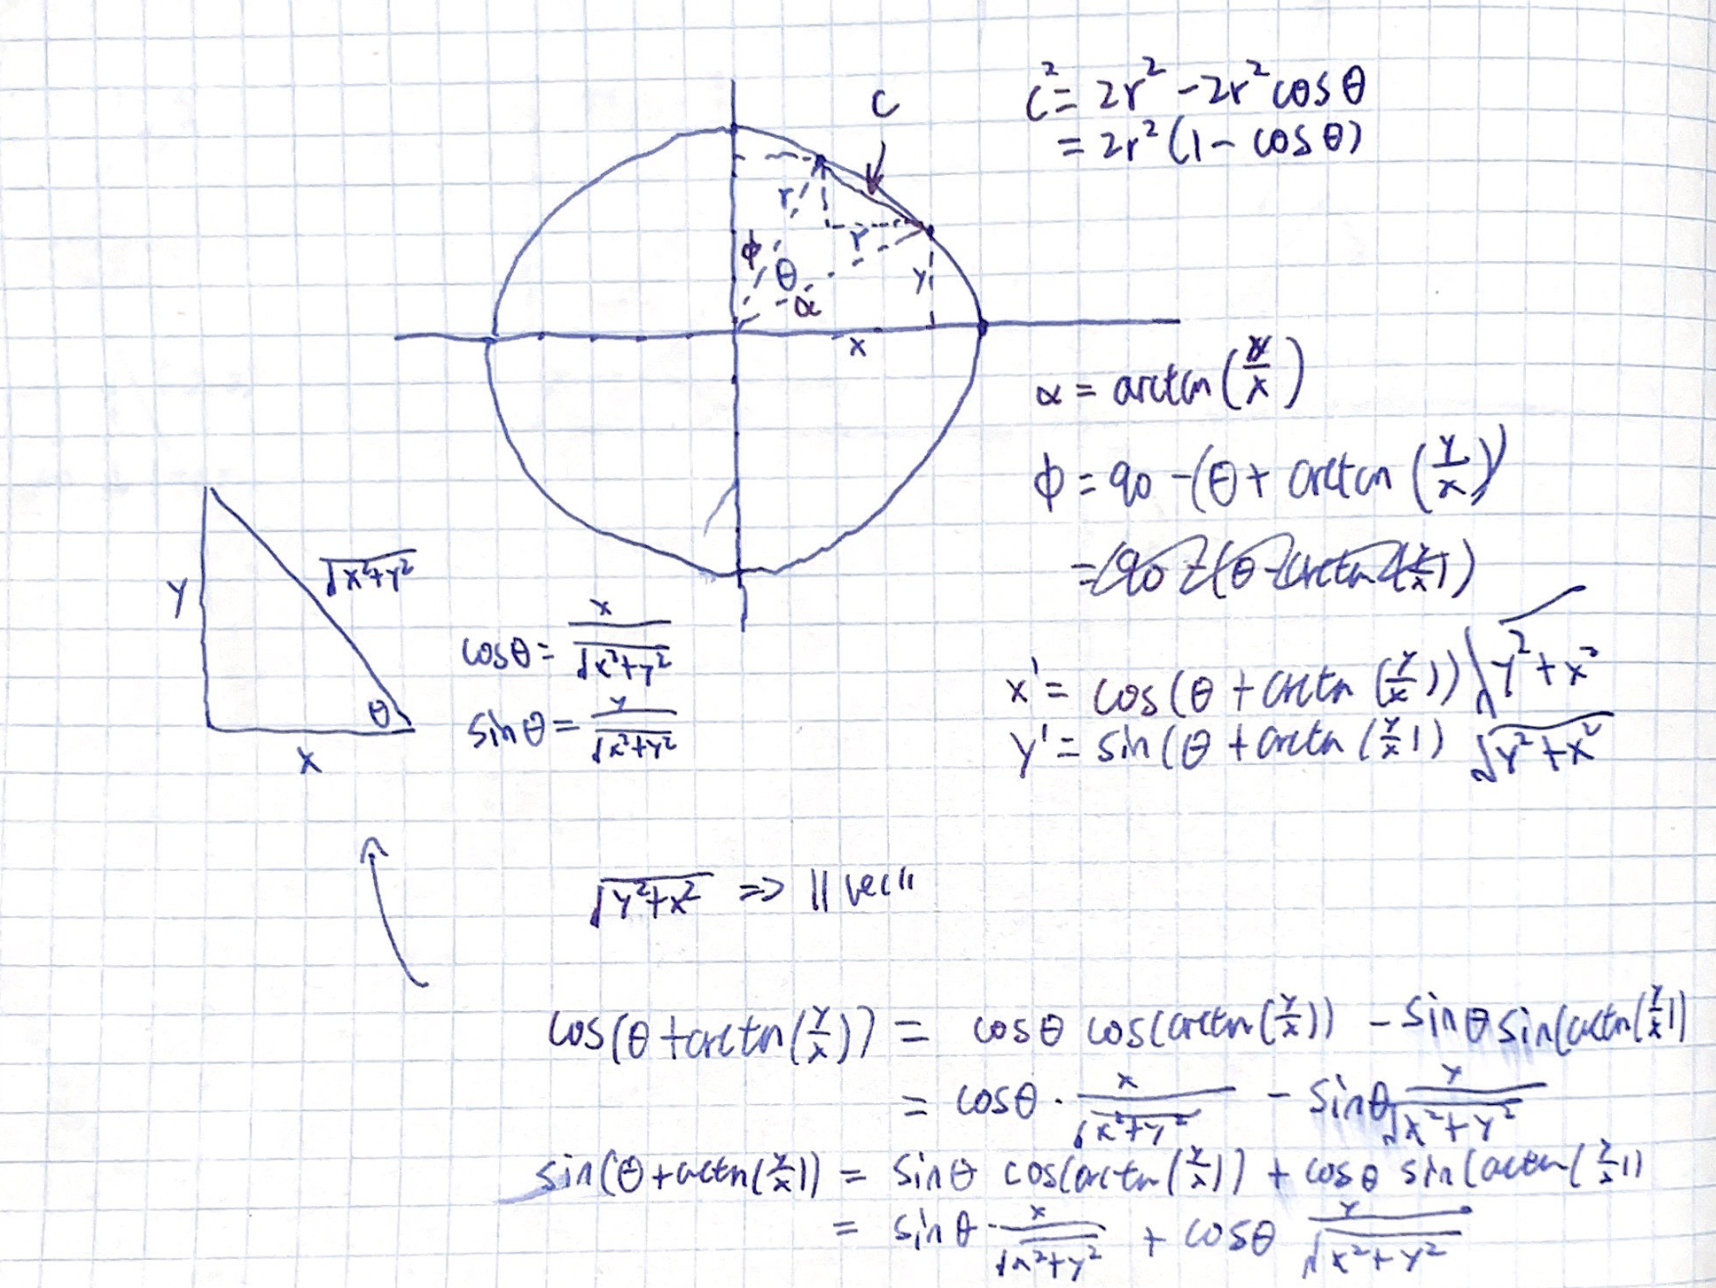 C
c² = 2r² - 2r² cos θ
= 2r² (1 - cos θ)
r
r
ϕ
θ
α
y
x
α = arctan (y/x)
ϕ = 90 - (θ + arctan (y/x))
y
√x²+y²
θ
x
cos θ = x/√x²+y²
sin θ = y/√x²+y²
x' = cos (θ + arctn (y/x)) √y² + x²
y' = sin (θ + arctn (y/x)) √y² + x²
√y²+x² => ||vec||
cos (θ + arctn (y/x)) = cos θ cos (arctn (y/x)) - sin θ sin (arctn (y/x))
= cos θ · x/√x²+y² - sin θ y/√x²+y²
sin (θ + arctn (y/x)) = sin θ cos (arctn (y/x)) + cos θ sin (arctn (y/x))
= sin θ · x/√x²+y² + cos θ y/√x²+y²